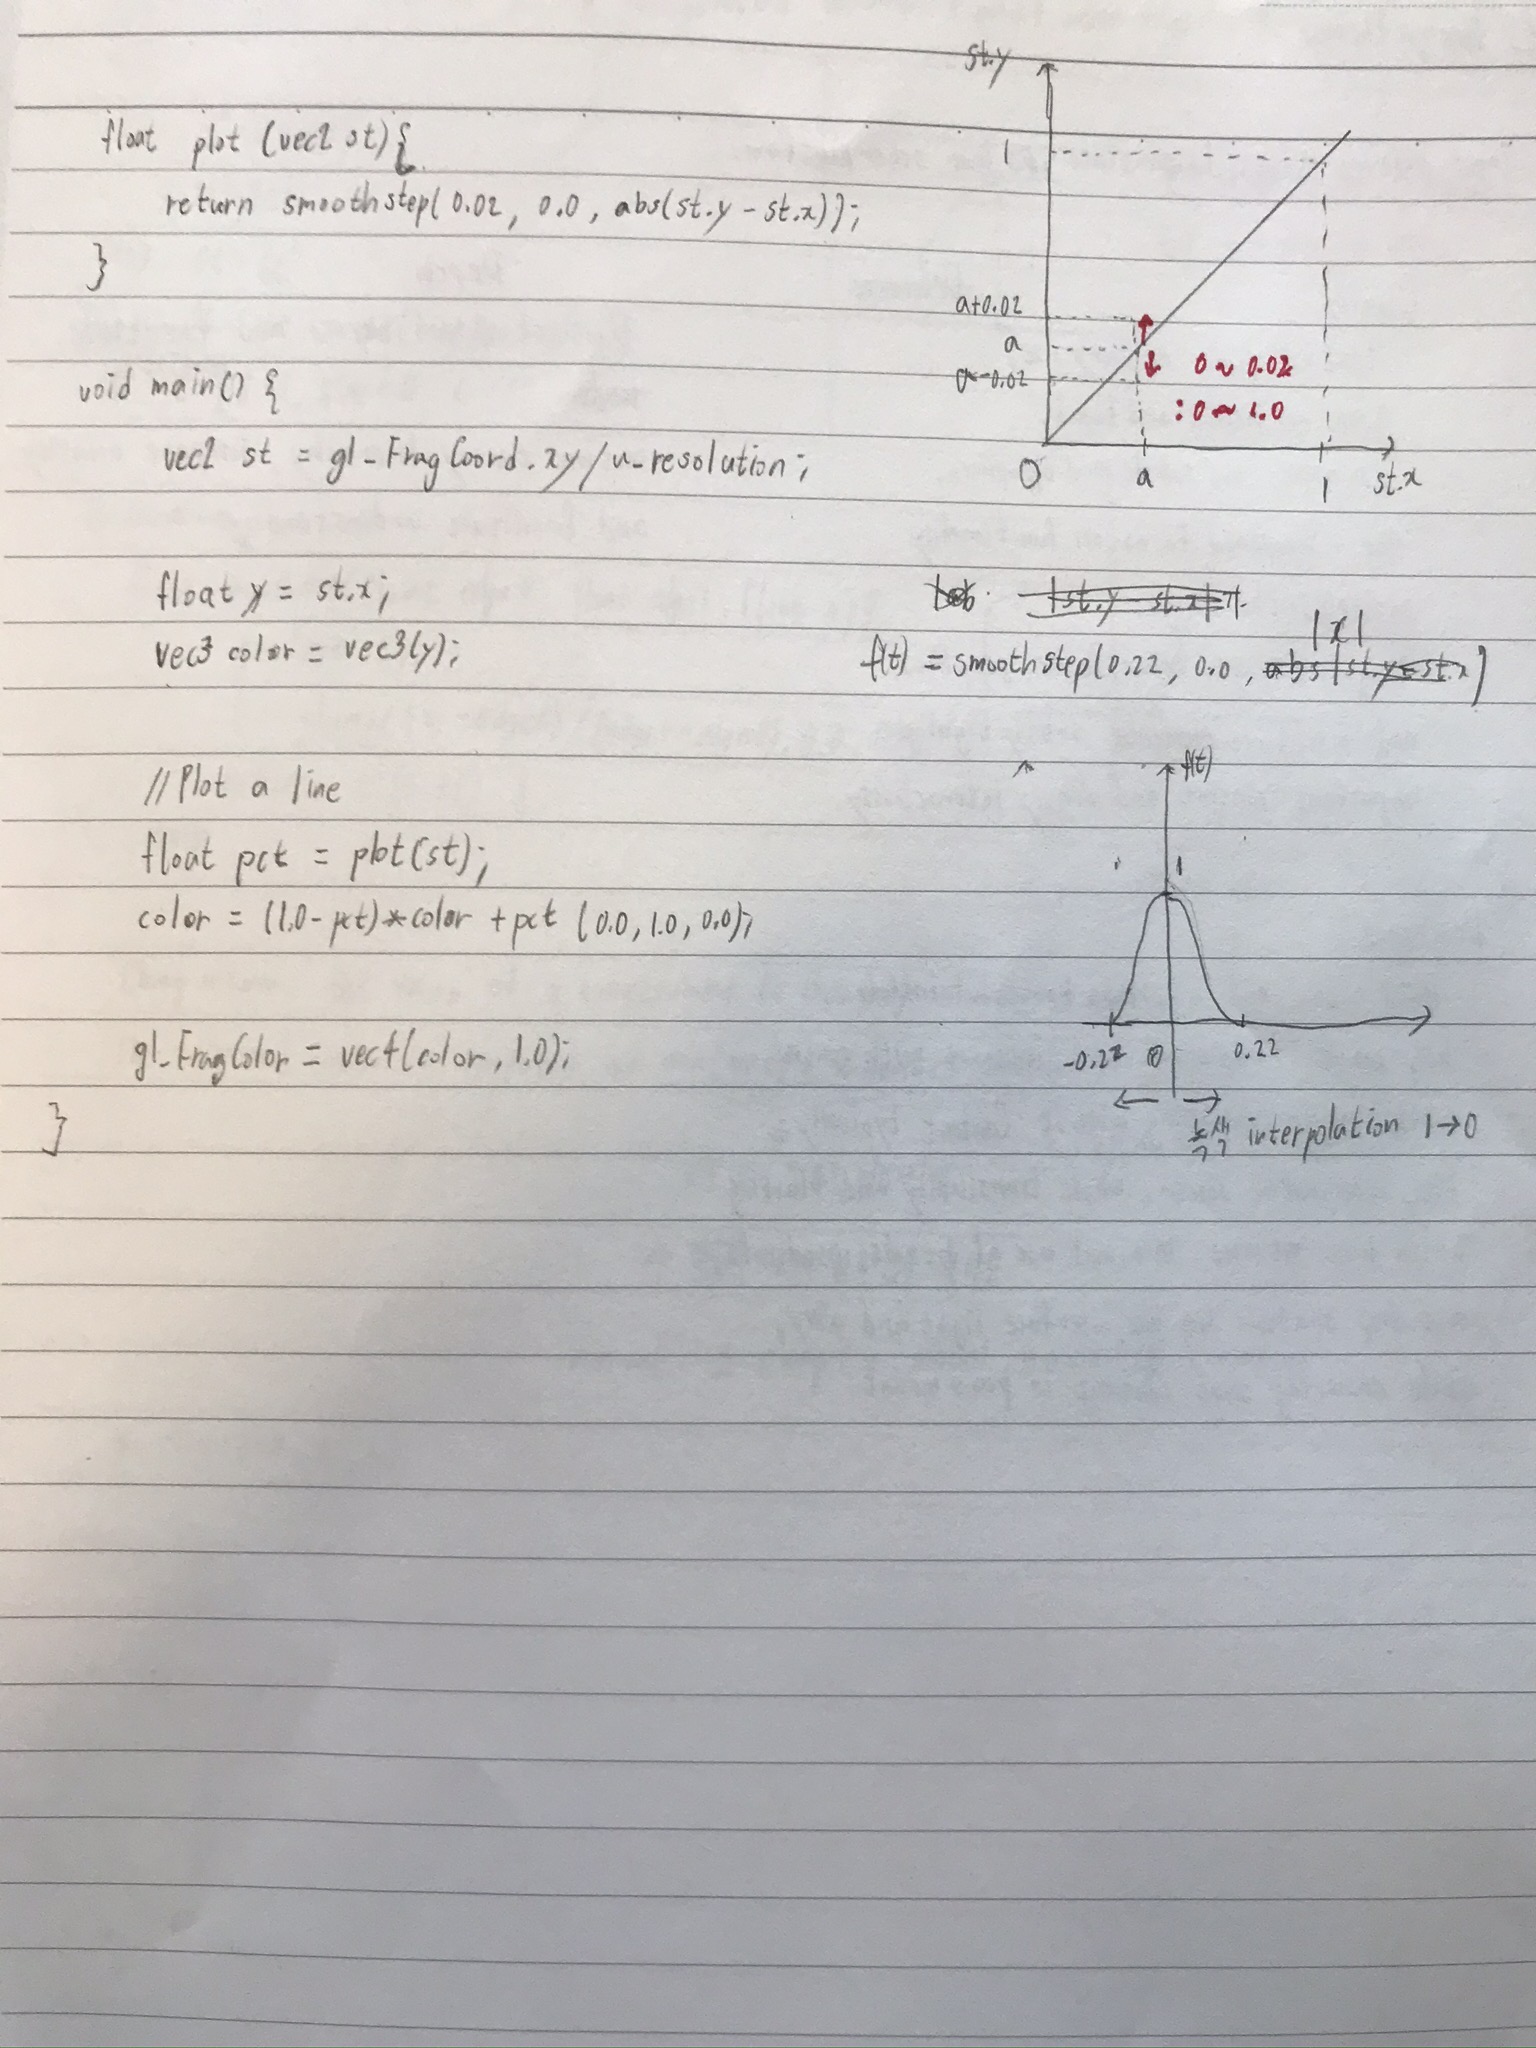 float plot (vec2 st){
return smoothstep(0.02, 0.0, abs(st.y - st.x));
}
void main() {
vec2 st = gl_FragCoord.xy/u_resolution;
float y = st.x;
vec3 color = vec3(y);
//Plot a line
float pct = plot(st);
color = (1.0-pct)*color + pct (0.0, 1.0, 0.0);
gl_FragColor = vec4(color, 1.0);
}
st.y
1
a+0.02
a
a-0.02
0 ~ 0.02
: 0 ~ 1.0
0
a
1
st.x
|st.y - st.x|
|x|
f(t) = smoothstep(0.22, 0.0, abs(st.y-st.x)
f(t)
1
-0.22
0
0.22
interpolation 1→0